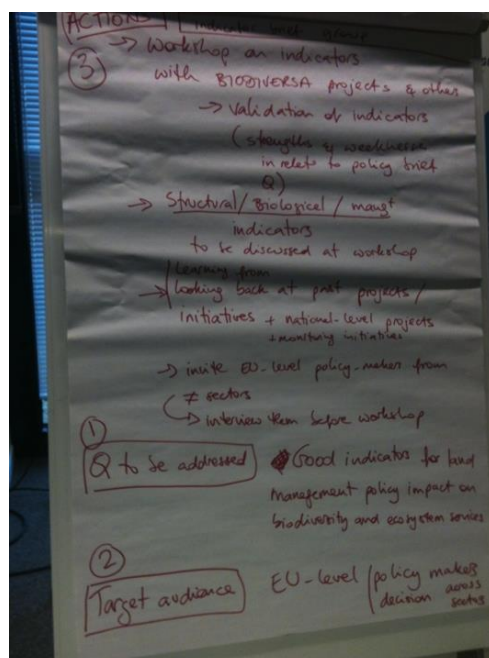 ACTIONS indicator brief group
③ → Workshop on indicators
with BIODIVERSA projects & others
→ validation of indicators
(strengths & weaknesses
in relato to policy brief
Q)
→ Structural / Biological / mangt
indicators
to be discussed at workshop
Learning from
→ looking back at past projects /
initiatives + national-level projects
+ monitoring initiatives
→ invite EU-level policy-makers from
≠ sectors
→ interview them before workshop
①
Q to be addressed
Good indicators for land
management policy impact on
biodiversity and ecosystem services
②
Target audience
EU-level / policy makers
decision across
sectors